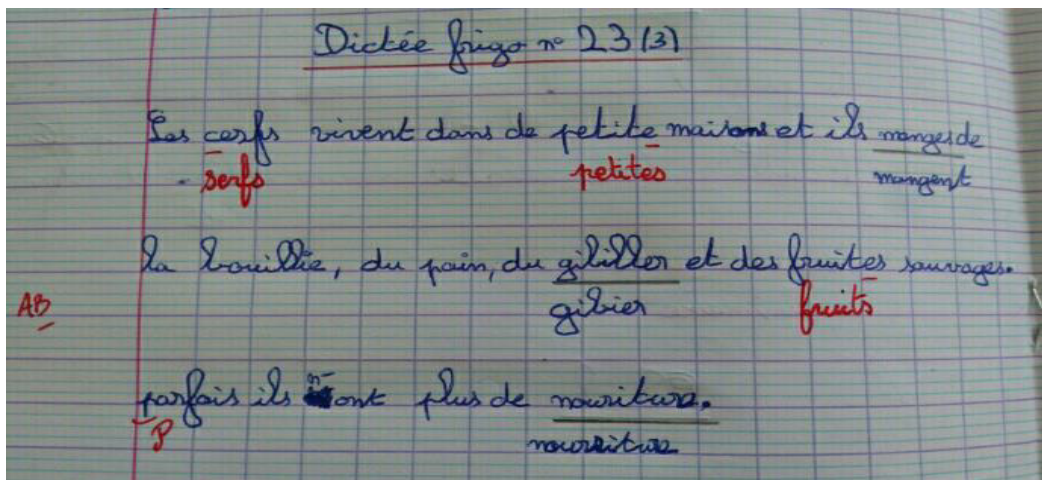 Dictée frigo n° 23 (3)
Les cerfs vivent dans de petite maisons et ils manges de
serfs petites mangent
la bouillie, du pain, du gibiller et des fruites sauvages.
AB gibier fruits
parfais ils n'ont plus de nouriture.
P nourriture